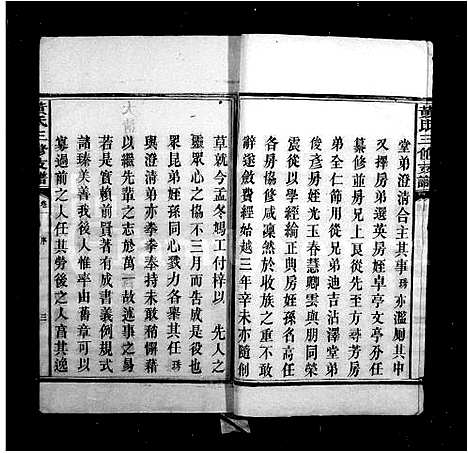 董氏三修支譜
堂弟澄清合主其事 琇 亦濫厠其中
又擇房弟選英房姪卓亭文亭分任
纂修房弟兄上艮從先至方尋芳房
弟全仁飾用從兄弟迪吉沽澤堂弟
俊彥房姪光玉春慧卿雲與朋同榮
震從以學經綸正典房姪孫名高任
各協修咸凜然於收族之重不敢固
辭遂斂費經始越三年辛未亦隨創
草就今孟冬鳩工付梓以 先人之
靈眾心之協不三月而告成是役也
眾昆弟姪孫同心戮力各樂其任 琇
與澄清弟亦拳拳奉持未敢稍懈藉
以繼先輩之志於萬一 故述事之易
若是實賴前賢有成書義例規式
諸臻美善我後人惟率由舊章可以
寡過前之人任其勞後之人富其逸
董氏三修支譜
卷一
序
三